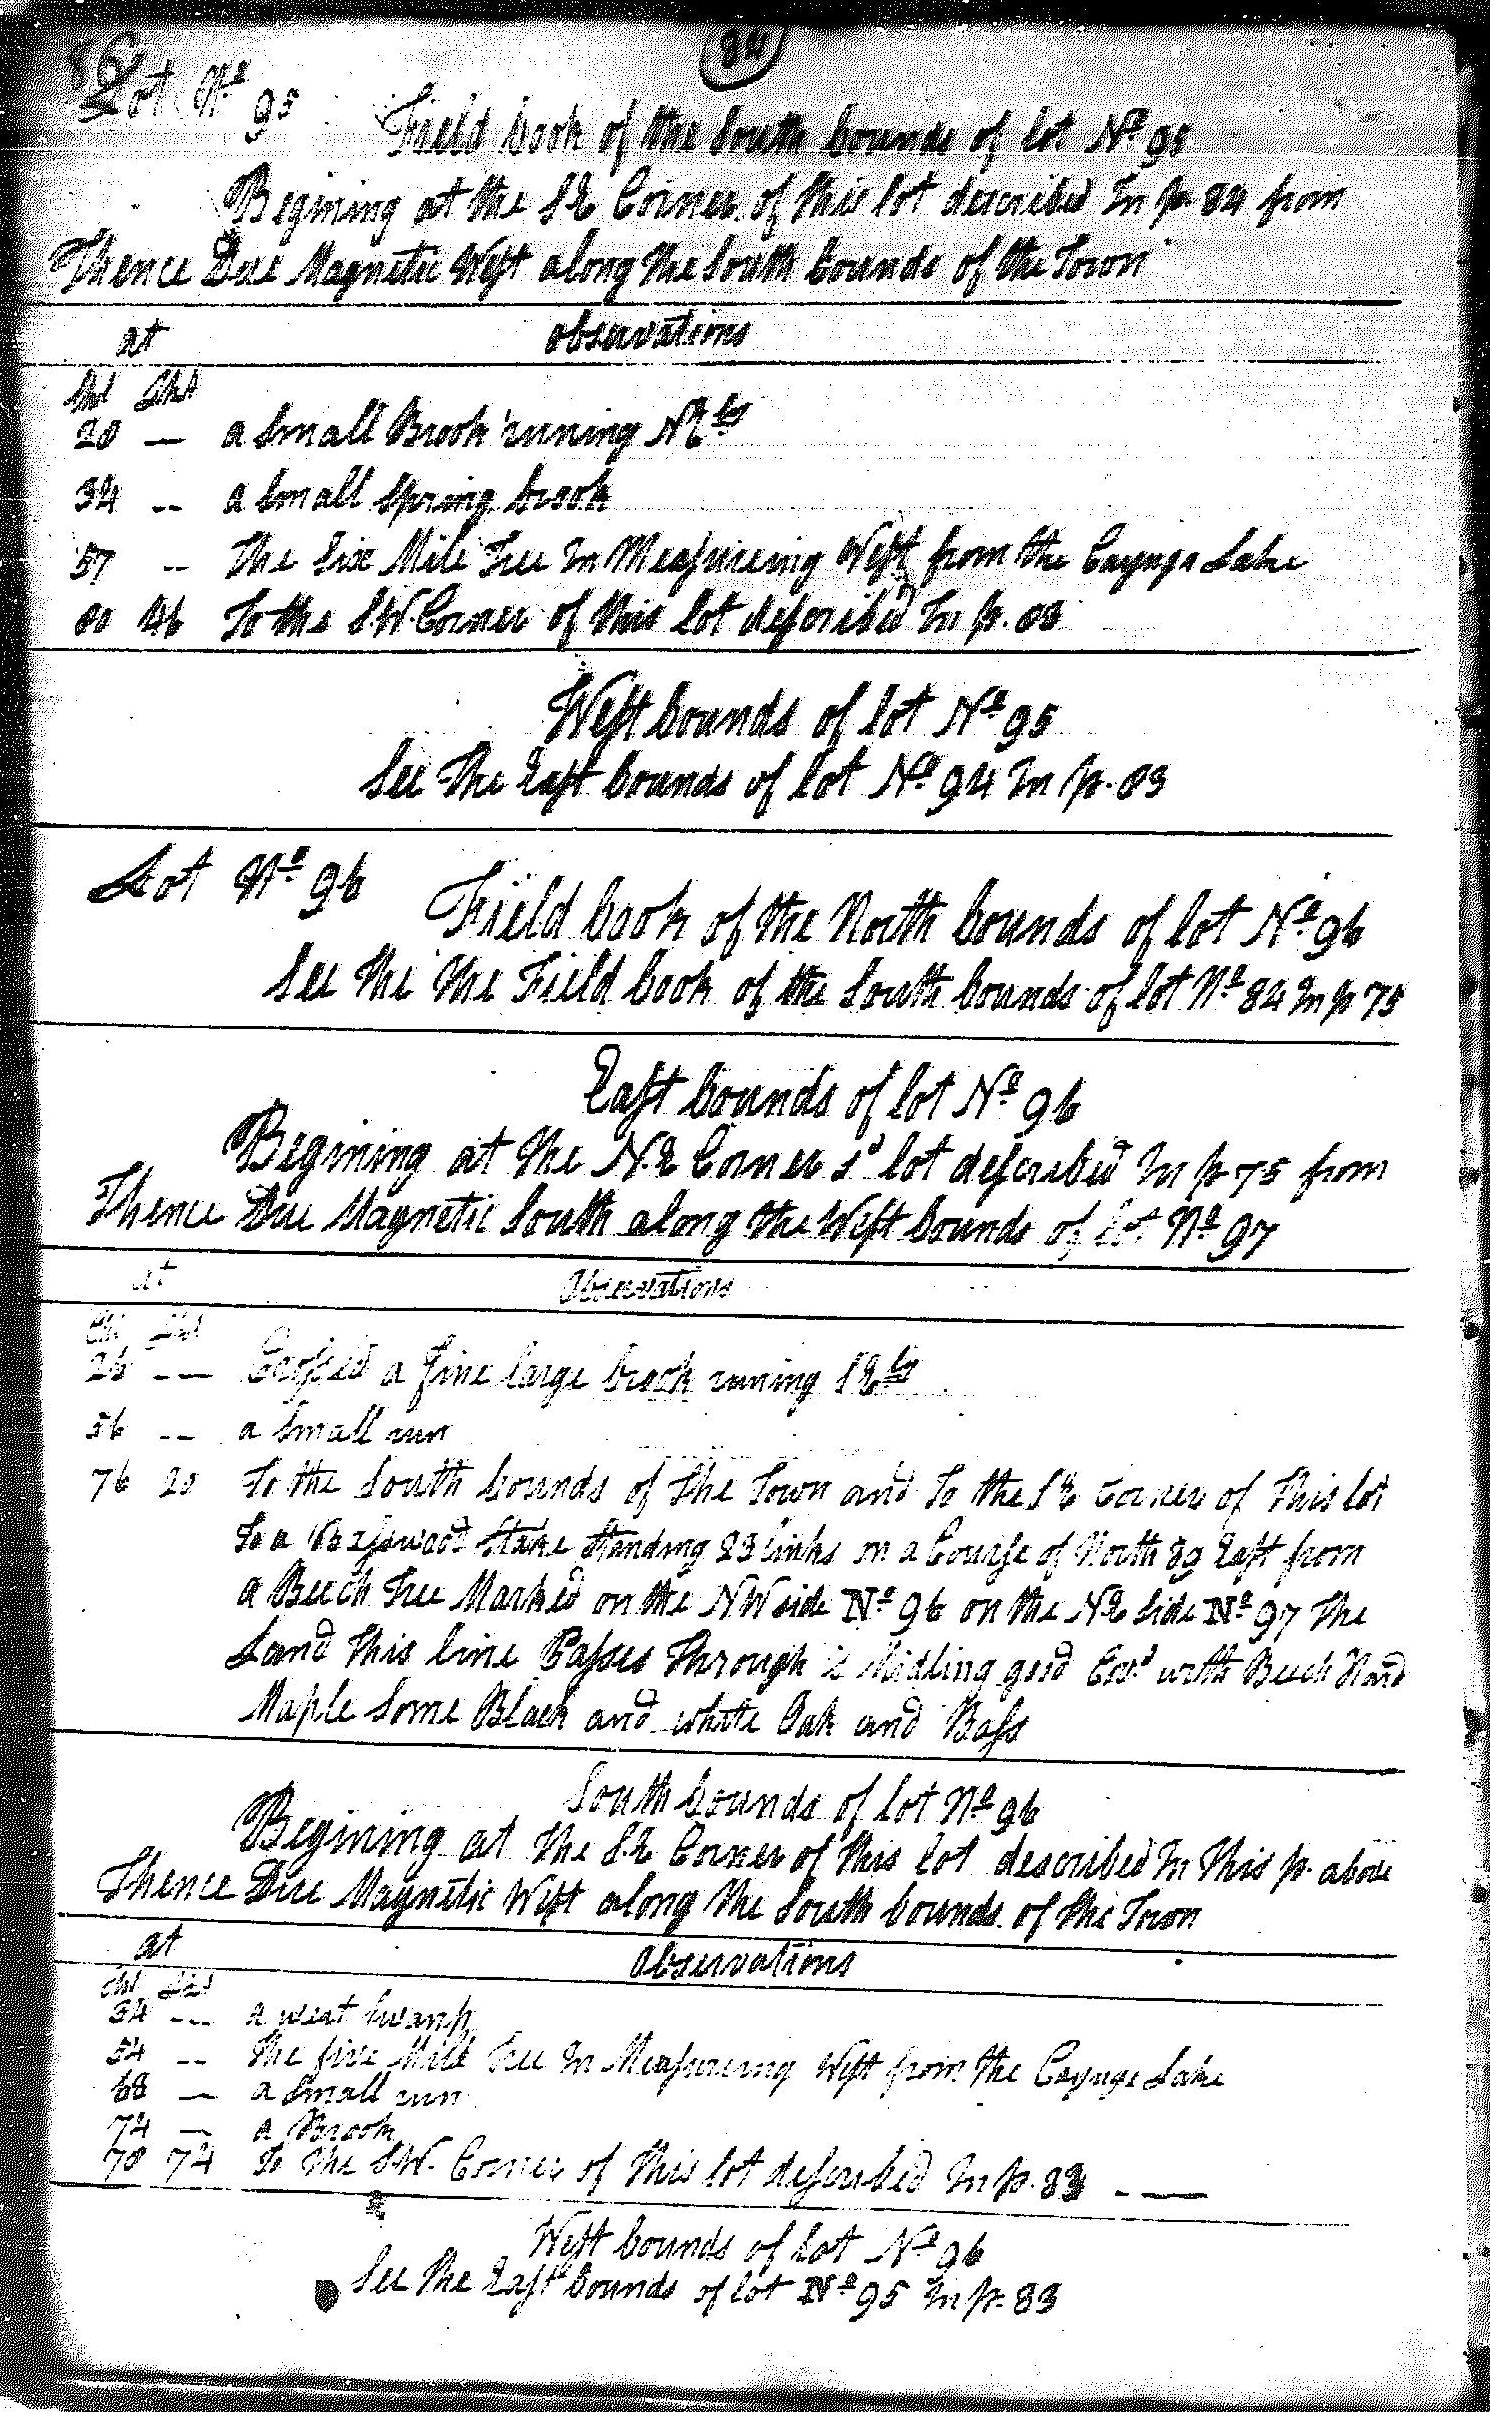 84
Lot Nº 95
Field book of the South bounds of lot Nº 95
Begining at the S E Corner of this lot described In p. 84 from
Thence Due Magnetic West along the South bounds of the Town
at observations
Chs Lks
20 — a Small Brook runing N Ely
34 -- a Small Spring brook
57 -- the Six Mile Tree In Measureing West from the Cayuga Lake
80 46 To the S W. Corner of this lot described In p. 83
West bounds of lot Nº 95
See The East bounds of lot Nº 94 In p. 83
Lot Nº 96
Field book of the North bounds of lot Nº 96
See the the Field book of the South bounds of lot Nº 84 In p 75
East bounds of lot Nº 96
Begining at the N. E Corner sd lot described In p 75 from
Thence Due Magnetic South along the West bounds of lot Nº 97
at Observations
Chs Lks
26 -- Crossed a fine large brook runing S Ely
56 -- a Small run
76 20 To the South bounds of the Town and To the S E Corner of This lot
To a Basswood Stake Standing 23 links on a Course of North 89 East from
a Beech Tree Marked on the N W side Nº 96 on the N E Side Nº 97 The
Land this line Passes Through is Midling good Covd with Beech Hard
Maple Some Black and white Oak and Bass
South bounds of lot Nº 96
Begining at the S. E Corner of this lot described In This p. above
Thence Due Magnetic West along the South bounds of the Town
at Observations
Chs Lks
34 -- a weat Swamp
54 -- The five Mile Tree In Measureing West from the Cayuga Lake
68 — a Small run
74 — a Brook
78 74 To the S. W. Corner of this lot described In p. 83
West bounds of lot Nº 96
See the East bounds of lot Nº 95 In p. 83